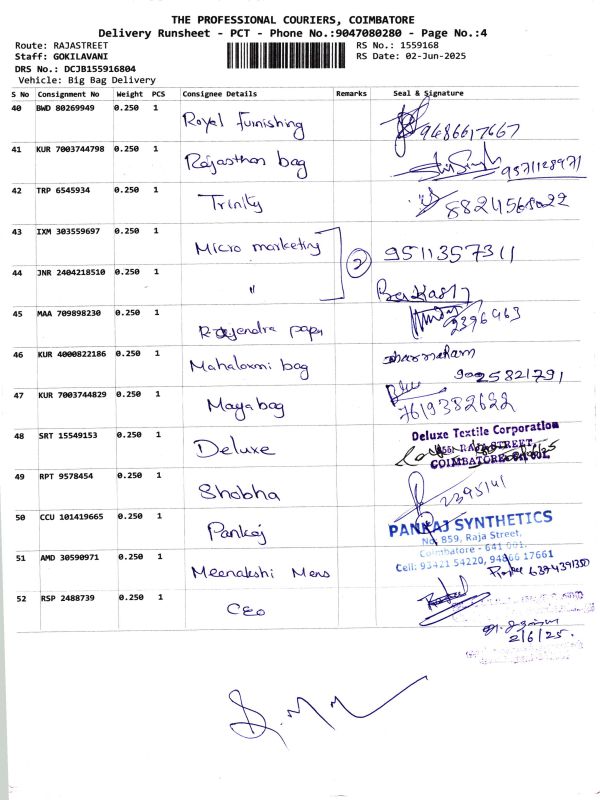 THE PROFESSIONAL COURIERS, COIMBATORE
Delivery Runsheet - PCT - Phone No.:9047080280 - Page No.:4
Route: RAJASTREET
RS No.: 1559168
Staff: GOKILAVANI
RS Date: 02-Jun-2025
DRS No.: DCJB155916804
Vehicle: Big Bag Delivery
S No Consignment No Weight PCS Consignee Details Remarks Seal & Signature
40 BWD 80269949 0.250 1 Royal Furnishing 9486617667
41 KUR 7003744798 0.250 1 Rajasthan bag 9571128971
42 TRP 6545934 0.250 1 Trinity 8824568022
43 IXM 303559697 0.250 1 Micro marketing 2 9511357311
44 JNR 2404218510 0.250 1 "
45 MAA 709898230 0.250 1 Rajendra papu 2396463
46 KUR 4000822186 0.250 1 Mahalaxmi bag
9025821791
47 KUR 7003744829 0.250 1 Maya bag 7619382622
48 SRT 15549153 0.250 1 Deluxe Deluxe Textile Corporation
RAJA STREET,
COIMBATORE
49 RPT 9578454 0.250 1 Shobha 2395141
50 CCU 101419665 0.250 1 Pankaj PANKAJ SYNTHETICS
No. 859, Raja Street,
Coimbatore - 641 001.
Cell: 93421 54220, 94866 17661
51 AMD 30590971 0.250 1 Meenakshi Mens 6374391350
52 RSP 2488739 0.250 1 CEO
2/6/25.